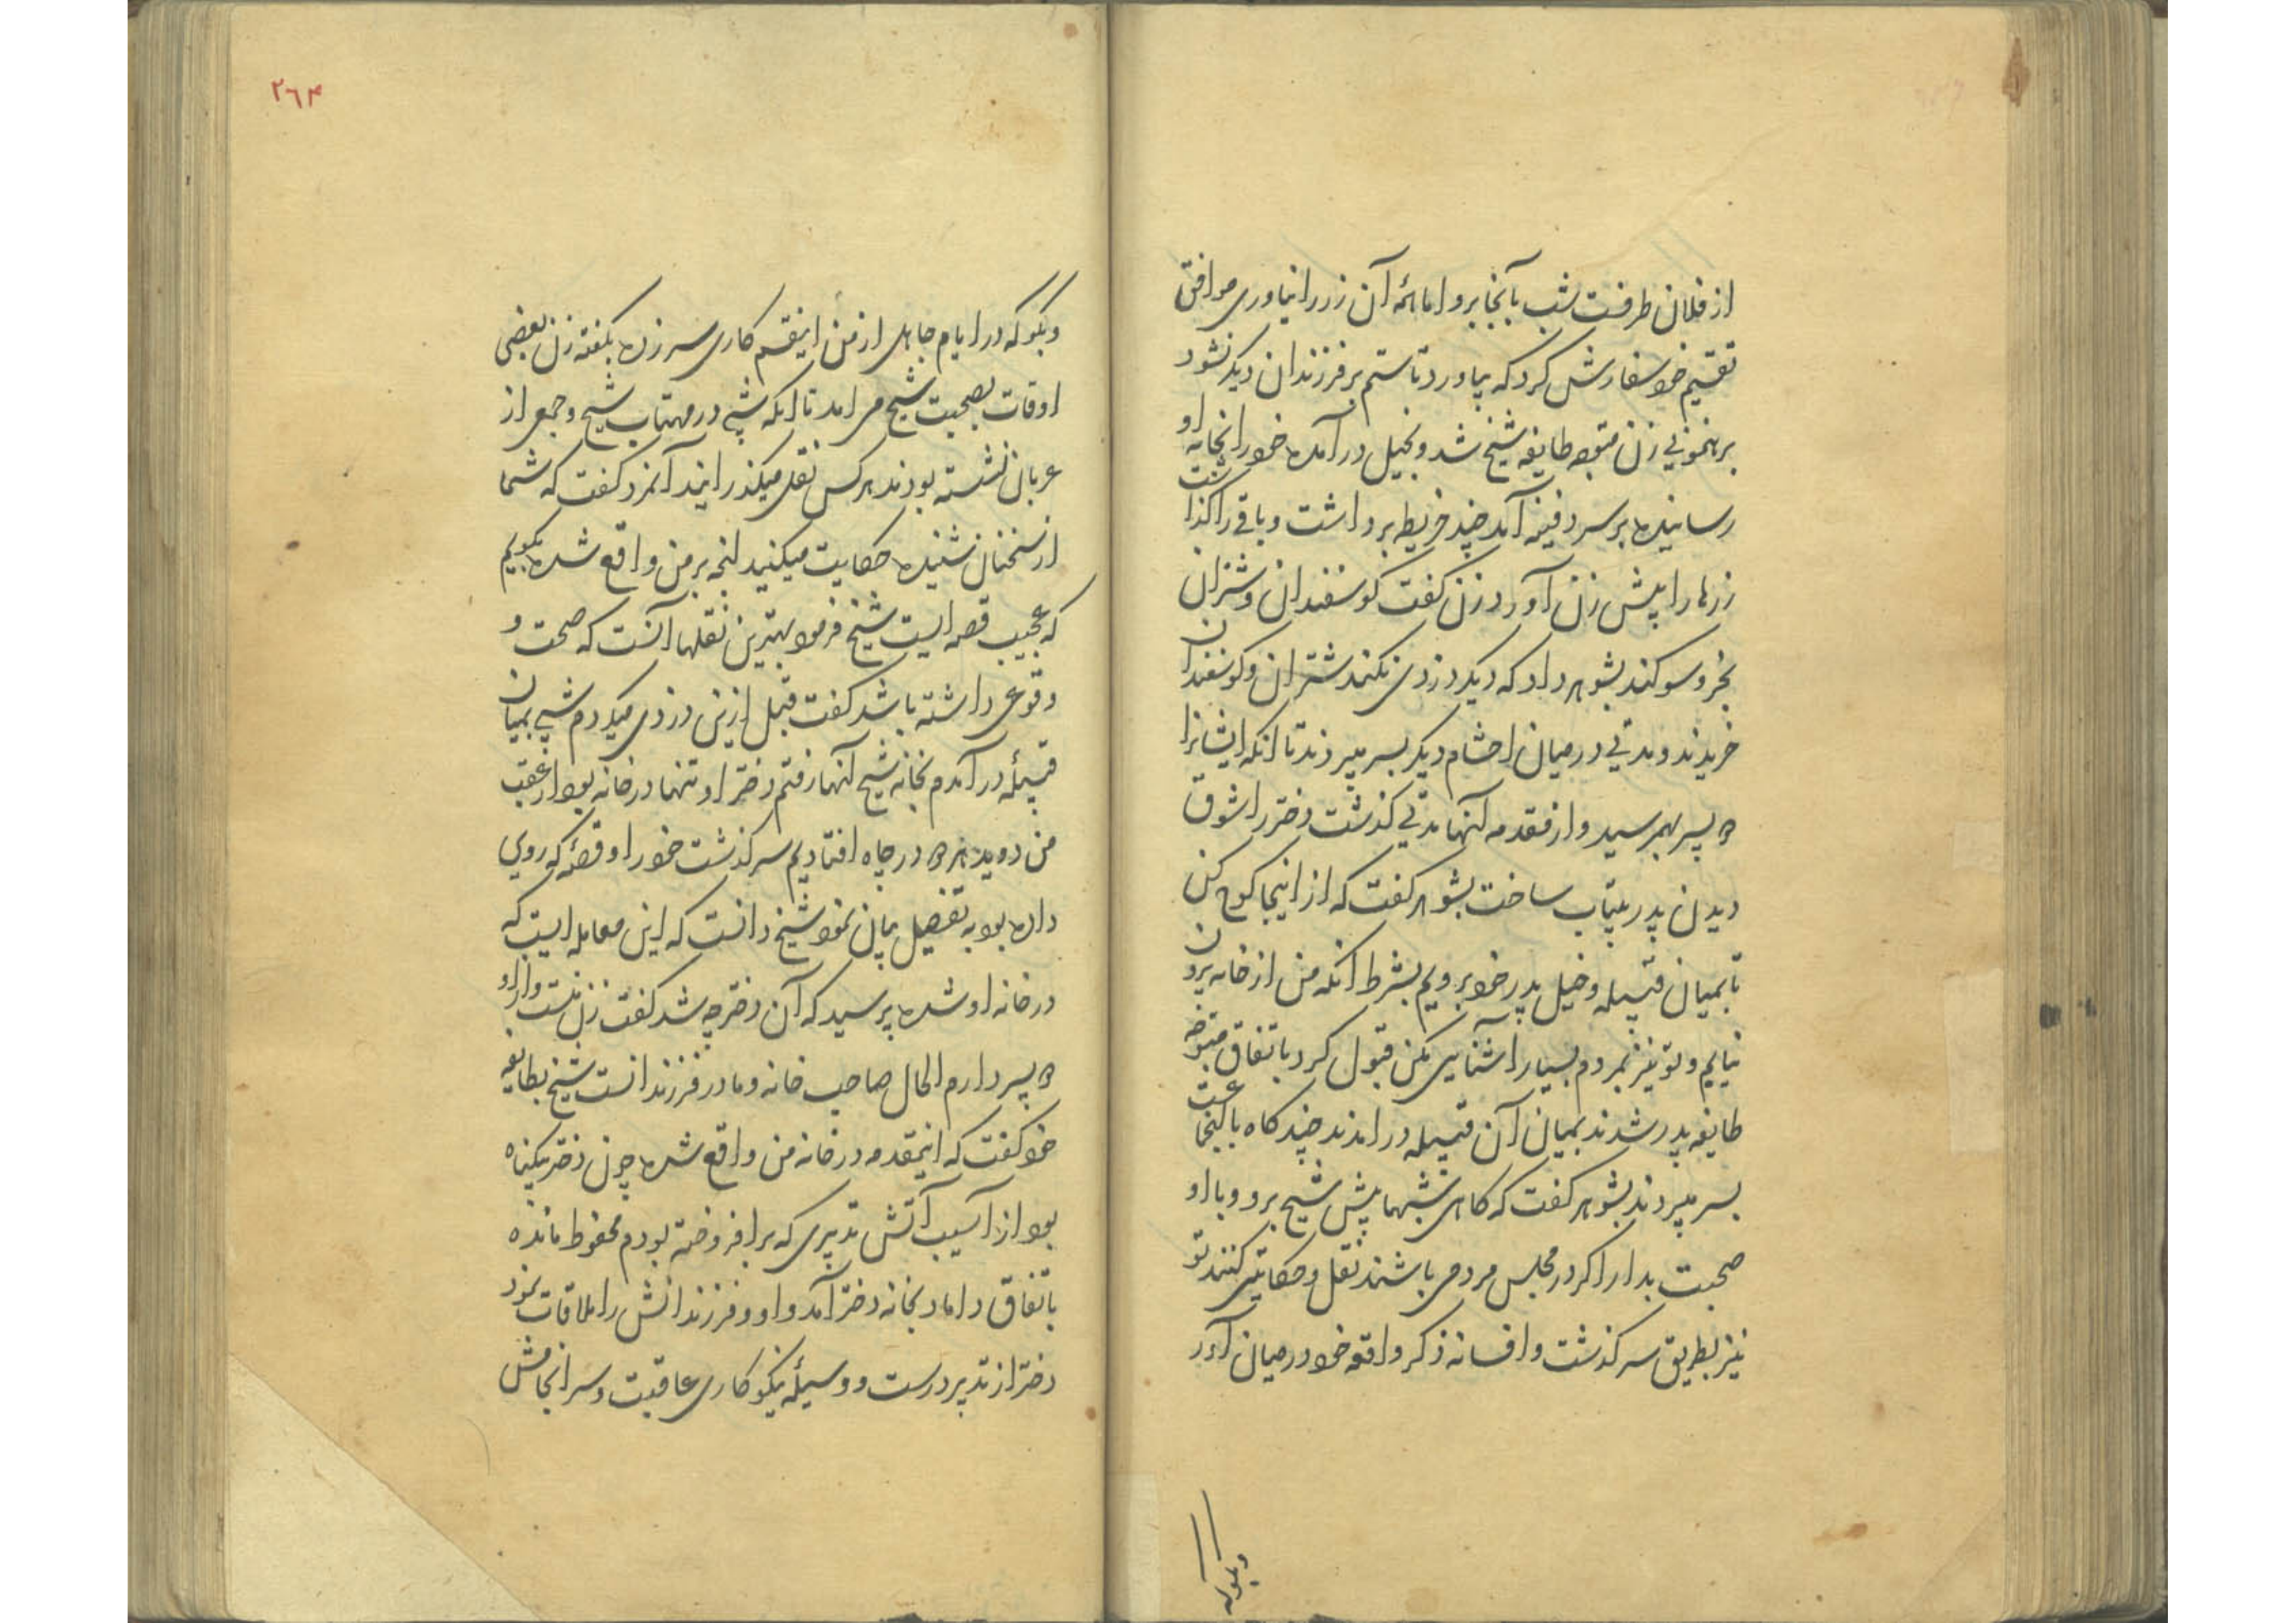 از فلان طرفت شب بآنجا برو اما همۀ آن زر را نیاوری موافق
تقسیم خود سفارش کرد که بیاورد تا ستم بر فرزندان دیگر نشود
برهنمونی زن متوجه طایفه شیخ شد و بخیل در آمده خود را بخانه او
رسانیده بر سر دفینه آمد چند خریطه برداشت و باقی را گذاشت
زرها را پیش زن آورد زن گفت گوسفندان و شتران
بخر و سوگند بشوهر داد که دیگر دزدی نکند شتران و گوسفندان
خریدند و مدتی در میان احشام دیگر بسر میبردند تا انکه ایشانرا
دو پسر بهمرسید و از مقدمه آنها مدتی گذشت دختر را شوق
دیدن پدر بیتاب ساخت بشوهر گفت که از اینجا کوچ کن
تا بمیان قبیله و خیل پدر خود برویم بشرط انکه من از خانه بیرون
نیایم و تو نیز بمردم بسیار آشنایی مکن قبول کرد باتفاق متوجه
طایفه پدر شدند بمیان آن قبیله در امدند چند گاه با آنجماعت
بسر میبردند بشوهر گفت که گاهی شبها پیش شیخ برو و با او
صحبت بدار اگر در مجلس مردمی باشند نقل و حکایتی کنند تو
نیز بطریق سرگذشت و افسانه ذکر واقعه خود در میان آور
وبگو که
۲۶۴
وبگو که در ایام جاهلی از من اینقسم کاری سر زده بگفته زن بعضی
اوقات بصحبت شیخ می امد تا انکه شبی در مهتاب شیخ و جمعی از
عربان نشسته بودند هر کس نقلی میگذرانیدند آنمرد گفت که شما
از سخنان شنیده حکایت میکنید انچه بر من واقع شده بگویم
که عجیب قصه ایست شیخ فرمود بهترین نقلها آنست که صحت و
وقوعی داشته باشد گفت قبل ازین دزدی میکردم شبی بمیان
قبیلۀ در آمدم بخانه شیخ آنها رفتم دختر او تنها در خانه بود از عقب
من دوید هر دو در چاه افتادیم سرگذشت خود را و قصۀ که روی
داده بود به تفصیل بیان نمود شیخ دانست که این معامله ایست که
در خانه او شده پرسید که آن دختر چه شد گفت زن منست و از او
دو پسر دارم الحال صاحب خانه و مادر فرزندانست شیخ بطایفه
خود گفت که اینمقدمه در خانه من واقع شده چون دختر بیگناه
بود از آسیب آتش تدبیری که بر افروخته بودم محفوظ مانده
باتفاق داماد بخانه دختر آمد و او و فرزندانش را ملاقات نمود
دختر از تدبیر درست و وسیلۀ نیکوکاری عاقبت و سرانجامش